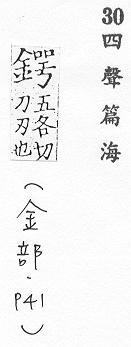 30四聲篇海
鍔 五各切
刀刃也
(金部.P41)